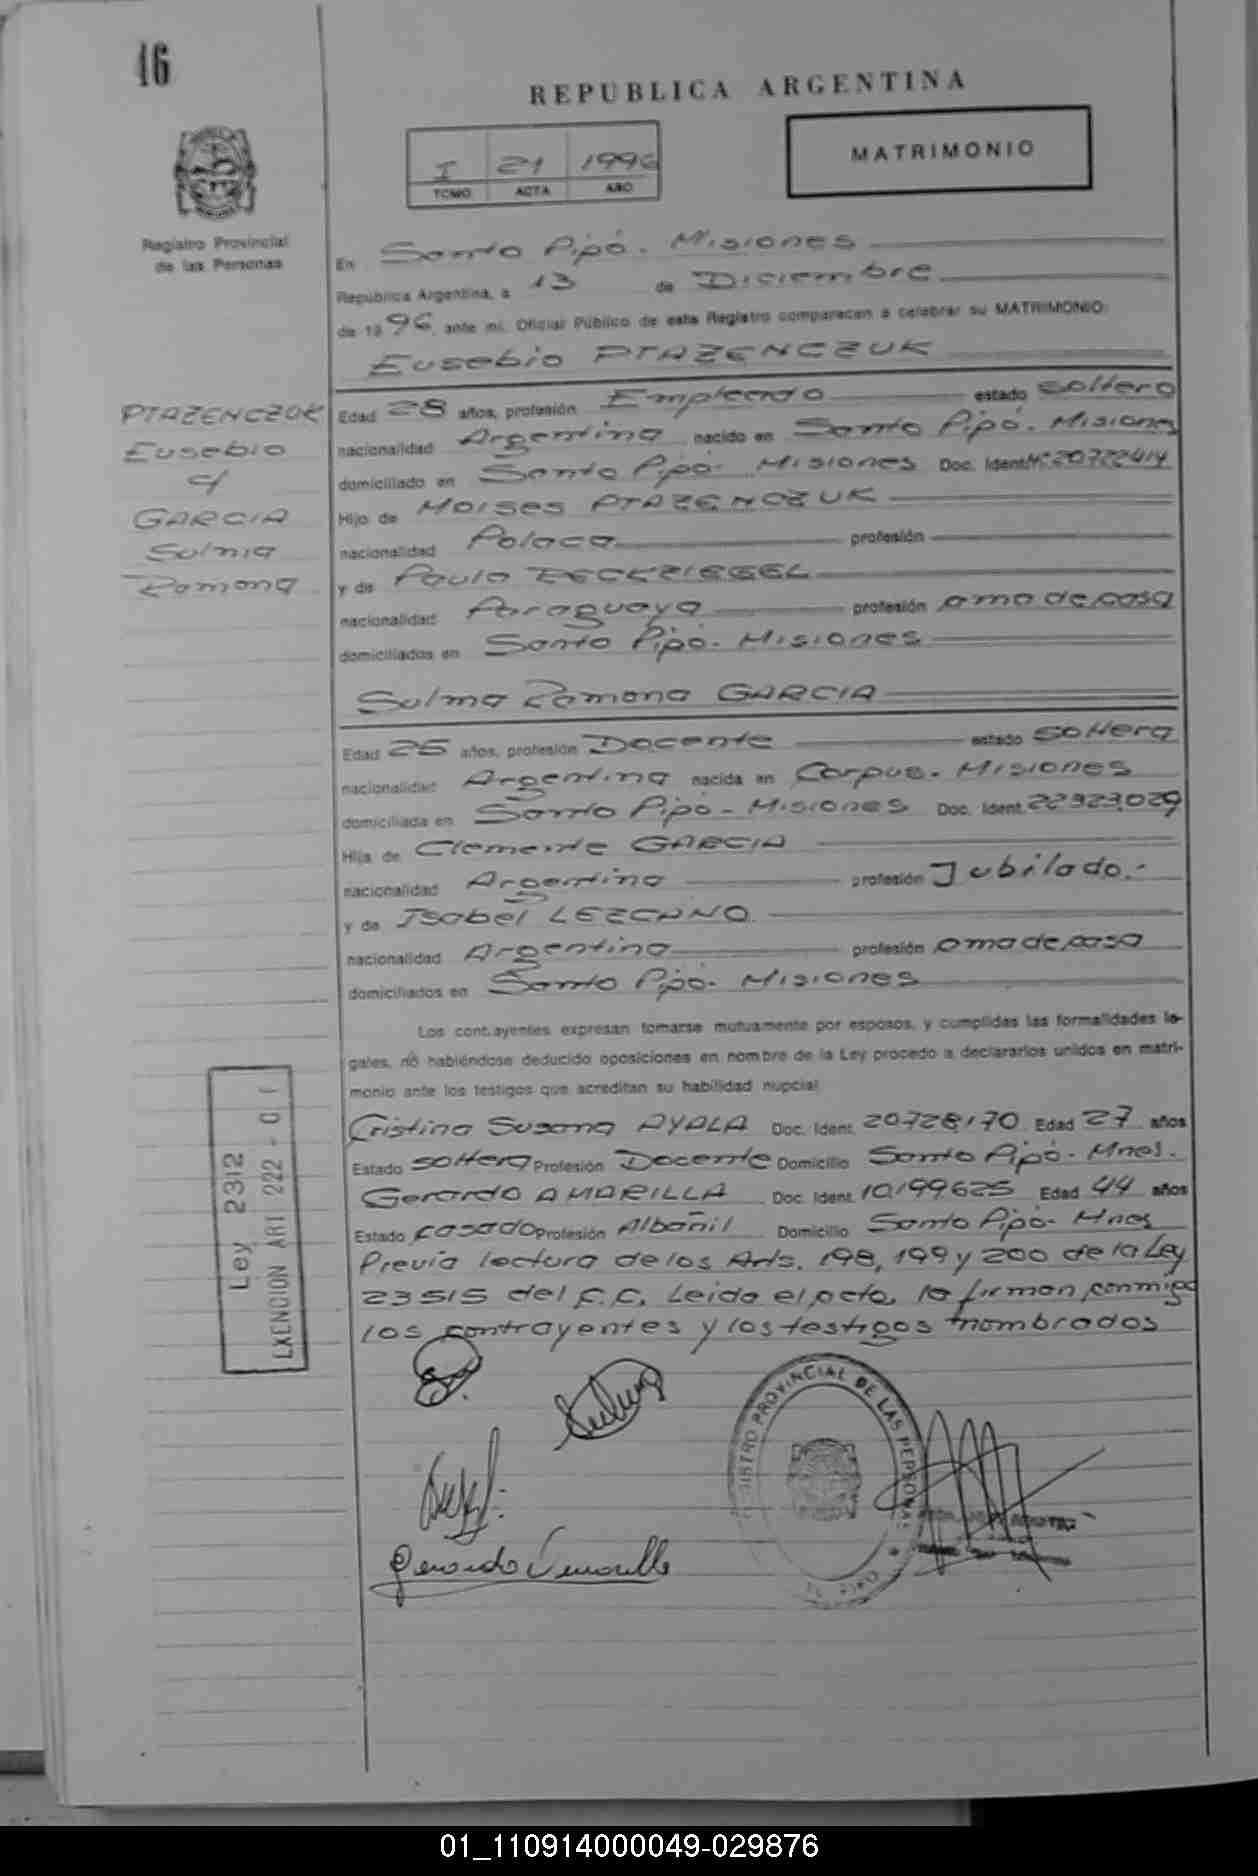 16
REPUBLICA ARGENTINA
MATRIMONIO
I 21 1996
TOMO ACTA AÑO
Registro Provincial
de las Personas
En Santo Pipó - Misiones
República Argentina, a 13 de Diciembre
de 1996, ante mí, Oficial Público de este Registro comparecen a celebrar su MATRIMONIO:
Eusebio PTAZENCZUK
PTAZENCZUK
Eusebio
c/
GARCIA
Sulma
Ramona
Edad 28 años, profesión Empleado estado soltero
nacionalidad Argentina nacido en Santo Pipó - Misiones
domiciliado en Santo Pipó - Misiones Doc. Ident. Nº 20722414
Hijo de Moises PTAZENCZUK
nacionalidad Polaca profesión
y de Paula
nacionalidad Paraguaya profesión ama de casa
domiciliados en Santo Pipó - Misiones
Sulma Ramona GARCIA
Edad 25 años, profesión Docente estado soltera
nacionalidad Argentina nacida en Corpus - Misiones
domiciliada en Santo Pipó - Misiones Doc. Ident. 22323.029
Hija de Clemente GARCIA
nacionalidad Argentina profesión Jubilado.-
y de Isabel LEZCANO
nacionalidad Argentina profesión ama de casa
domiciliados en Santo Pipó - Misiones
Los contrayentes expresan tomarse mutuamente por esposos, y cumplidas las formalidades le-
gales, no habiéndose deducido oposiciones en nombre de la Ley procedo a declararlos unidos en matri-
monio ante los testigos que acreditan su habilidad nupcial.
Cristina Susana AYALA Doc. Ident. 20.728,170 Edad 27 años
Estado soltera Profesión Docente Domicilio Santo Pipó - Mnes.
Gerardo AMARILLA Doc. Ident. 10,199625 Edad 44 años
Estado casado Profesión Albañil Domicilio Santo Pipó - Mnes
Previa lectura de los Arts. 198, 199 y 200 de la Ley
23515 del C.C. Leída el acta, la firman conmigo
los contrayentes y los testigos nombrados
Ley 2312
EXENCION ART 222 - D F
REGISTRO PROVINCIAL DE LAS PERSONAS
Gerardo Amarilla
01_110914000049-029876